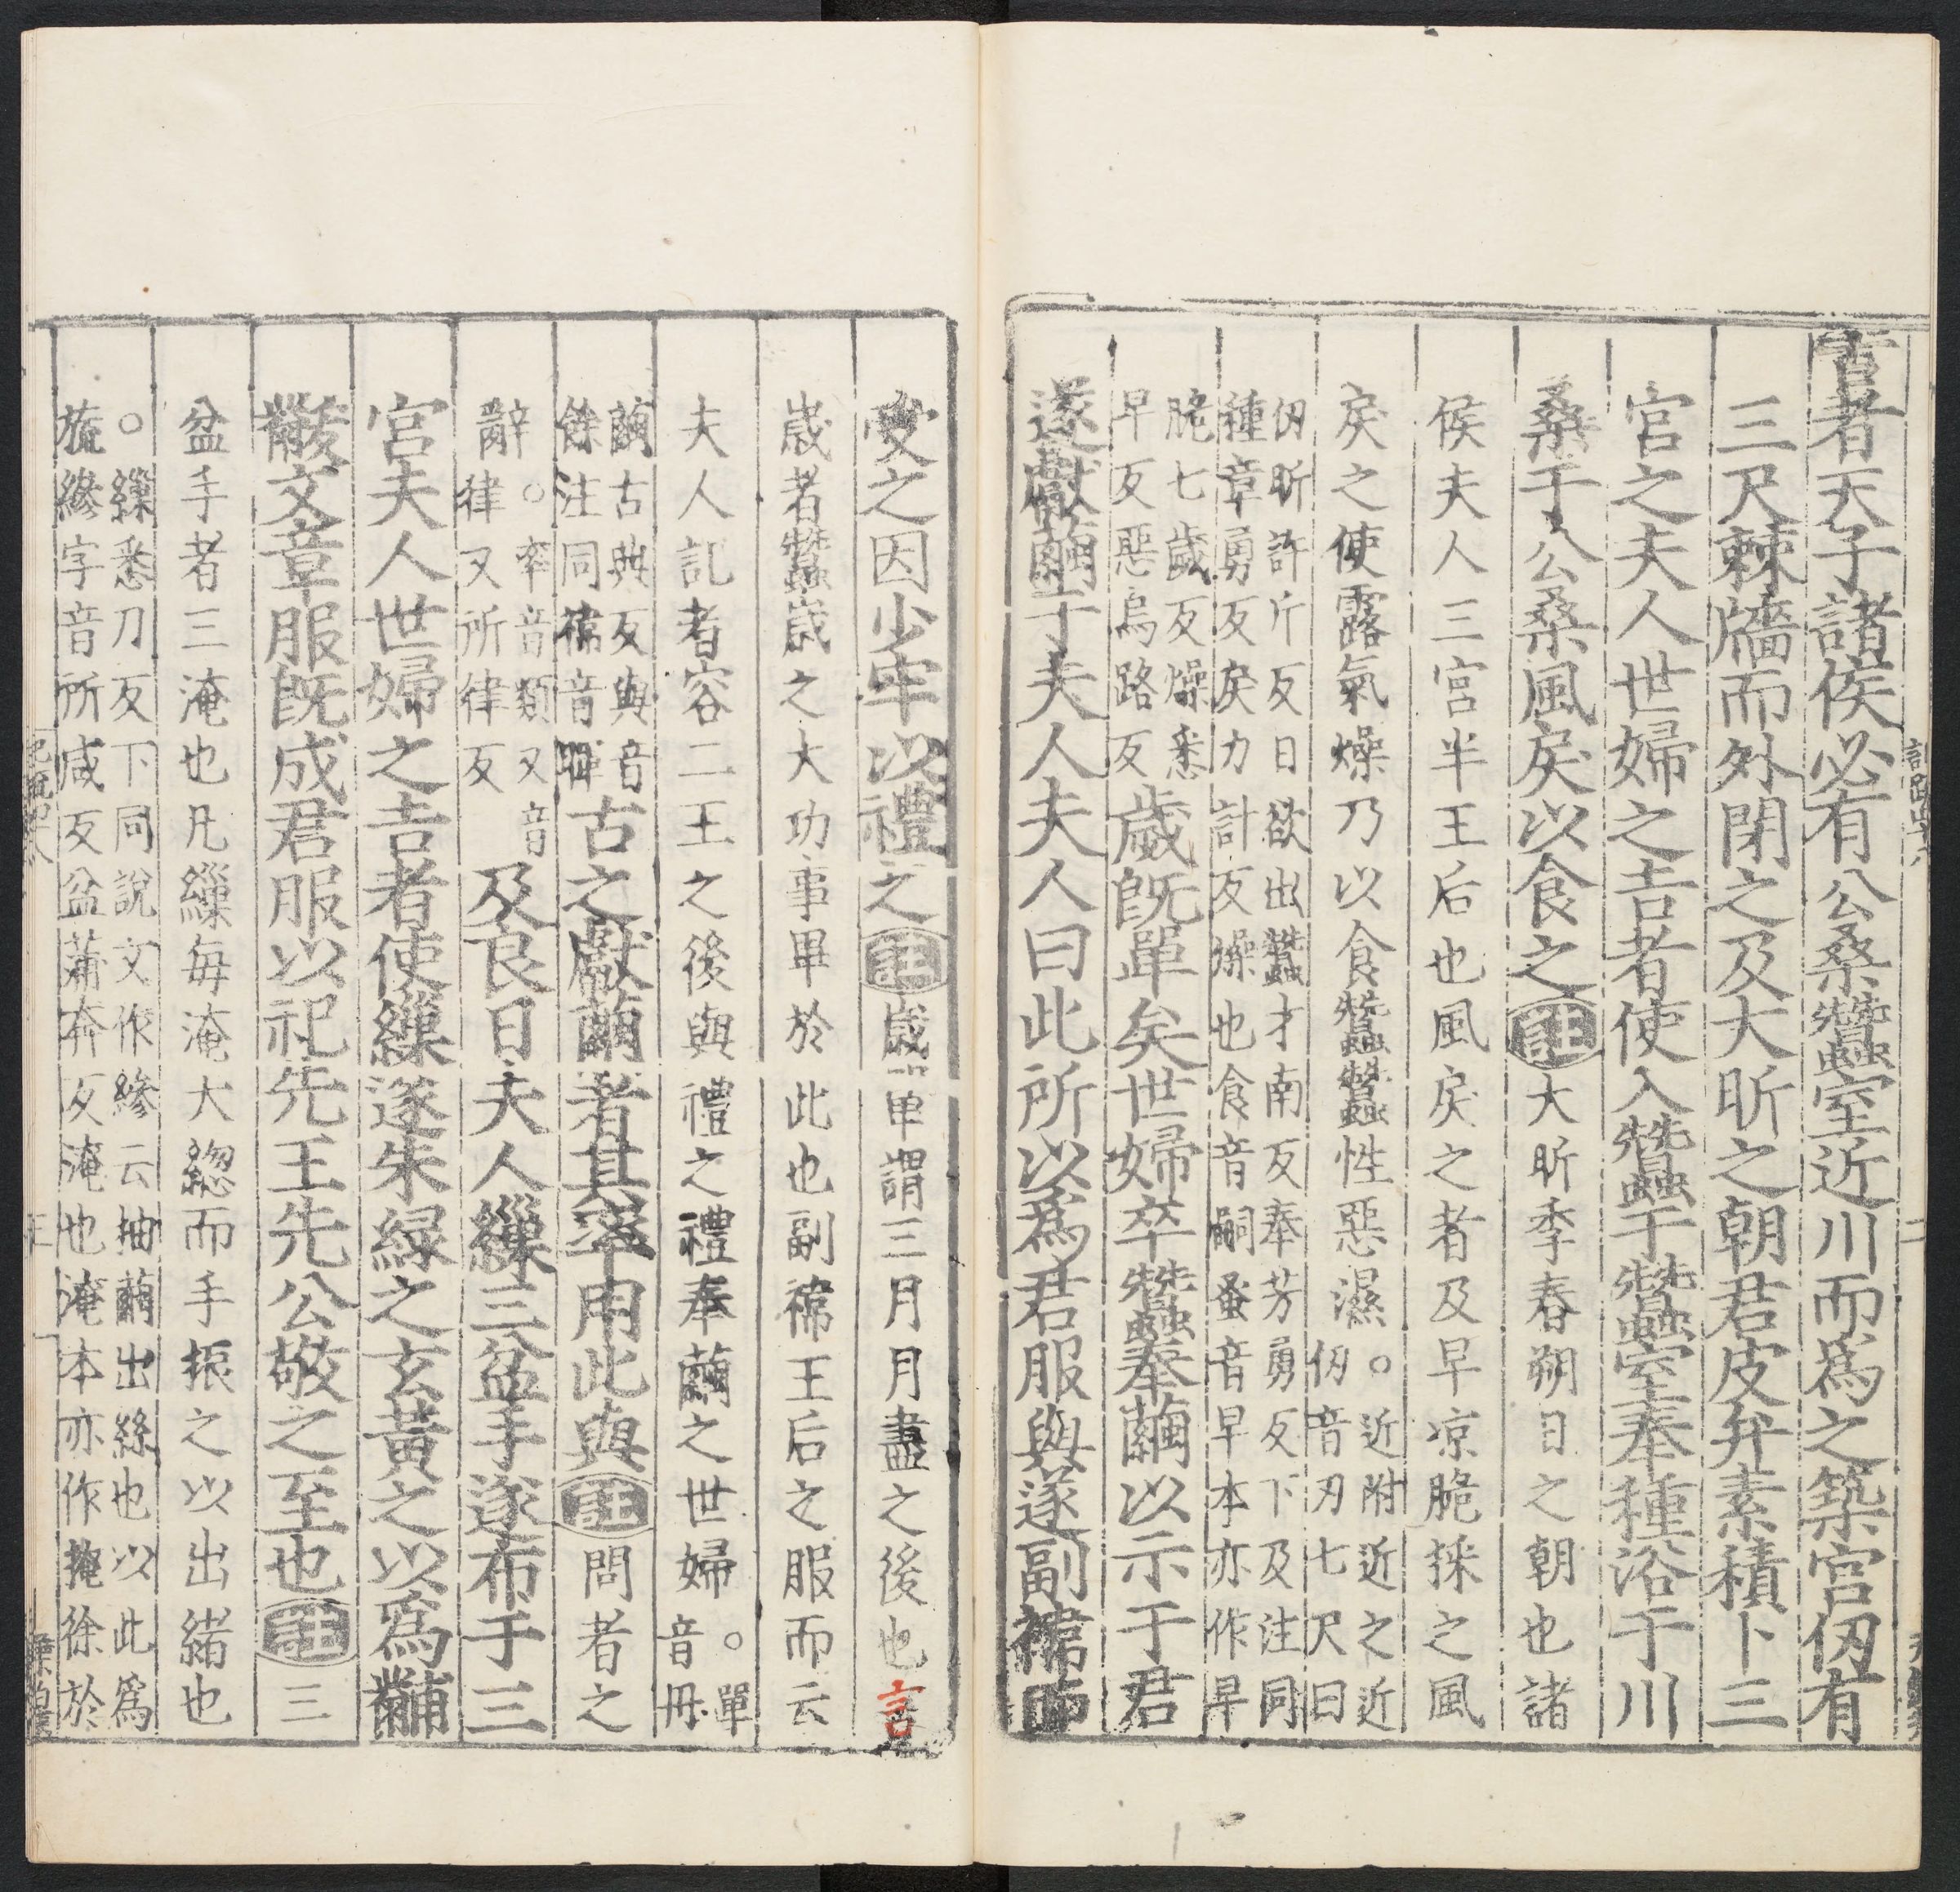 古者天子諸侯必有公桑蠶室近川而爲之築宮仞有
三尺棘牆而外閉之及大昕之朝君皮弁素積卜三
宮之夫人世婦之吉者使入蠶于蠶室奉種浴于川
桑于公桑風戾以食之註大昕季春朔日之朝也諸
侯夫人三宮半王后也風戾之者及早凉脆採之風
戾之使露氣燥乃以食蠶蠶性惡濕。近附近之近
仞音刃七尺曰
仞昕許斤反日欲出蠶才南反奉芳勇反下及注同
種章勇反戾力計反燥也食音嗣蚤音早本亦作早
脆七歲反燥悉
早反惡烏路反
歲旣單矣世婦卒蠶奉繭以示于君
遂獻繭于夫人夫人曰此所以爲君服與遂副褘而
受之因少牢以禮之註歲單謂三月月盡之後也言
歲者蠶歲之大功事畢於此也副褘王后之服而云
夫人記者容二王之後與禮之禮奉繭之世婦。單
音丹
繭古典反與音
餘注同褘音暉
古之獻繭者其率用此與註問者之
辭。率音類又音
律又所律反
及良日夫人繅三盆手遂布于三
宮夫人世婦之吉者使繅遂朱緑之玄黃之以爲黼
黻文章服旣成君服以祀先王先公敬之至也註三
盆手者三淹也凡繅每淹大緫而手振之以出緒也
。繅悉刀反下同說文作縿云抽繭出絲也以此爲
旒縿字音所咸反盆蒲奔反淹也淹本亦作掩徐於